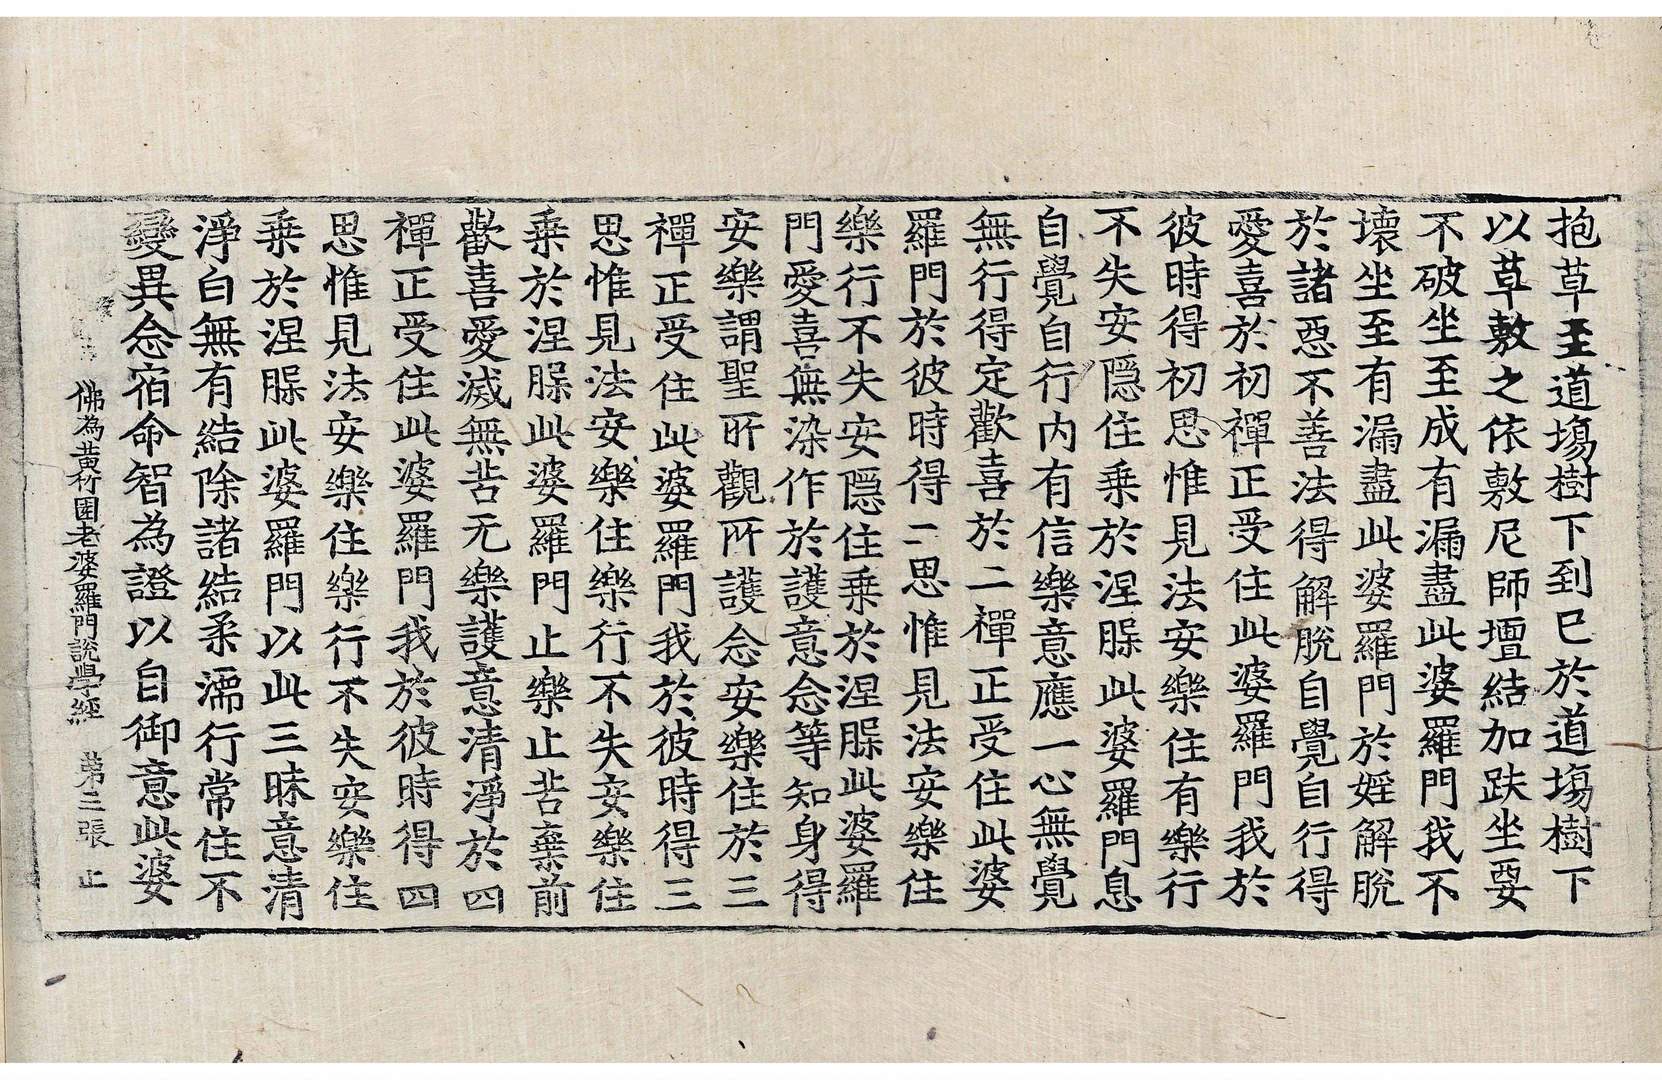 抱草至道塲樹下到已於道塲樹下
以草敷之依敷尼師壇結加趺坐要
不破坐至成有漏盡此婆羅門我不
壞坐至有漏盡此婆羅門於婬解脫
於諸惡不善法得解脫自覺自行得
愛喜於初禪正受住此婆羅門我於
彼時得初思惟見法安樂住有樂行
不失安隱住乗於涅脲此婆羅門息
自覺自行內有信樂意應一心無覺
無行得定歡喜於二禪正受住此婆
羅門於彼時得二思惟見法安樂住
樂行不失安隱住乗於涅脲此婆羅
門愛喜無染作於護意念等知身得
安樂謂聖所觀所護念安樂住於三
禪正受住此婆羅門我於彼時得三
思惟見法安樂住樂行不失安樂住
乗於涅脲此婆羅門止樂止苦棄前
歡喜愛滅無苦无樂護意清淨於四
禪正受住此婆羅門我於彼時得四
思惟見法安樂住樂行不失安樂住
乗於涅脲此婆羅門以此三昧意清
淨白無有結除諸結柔濡行常住不
變異念宿命智為證以自御意此婆
佛為黃竹園老婆羅門說學經 第三張 止